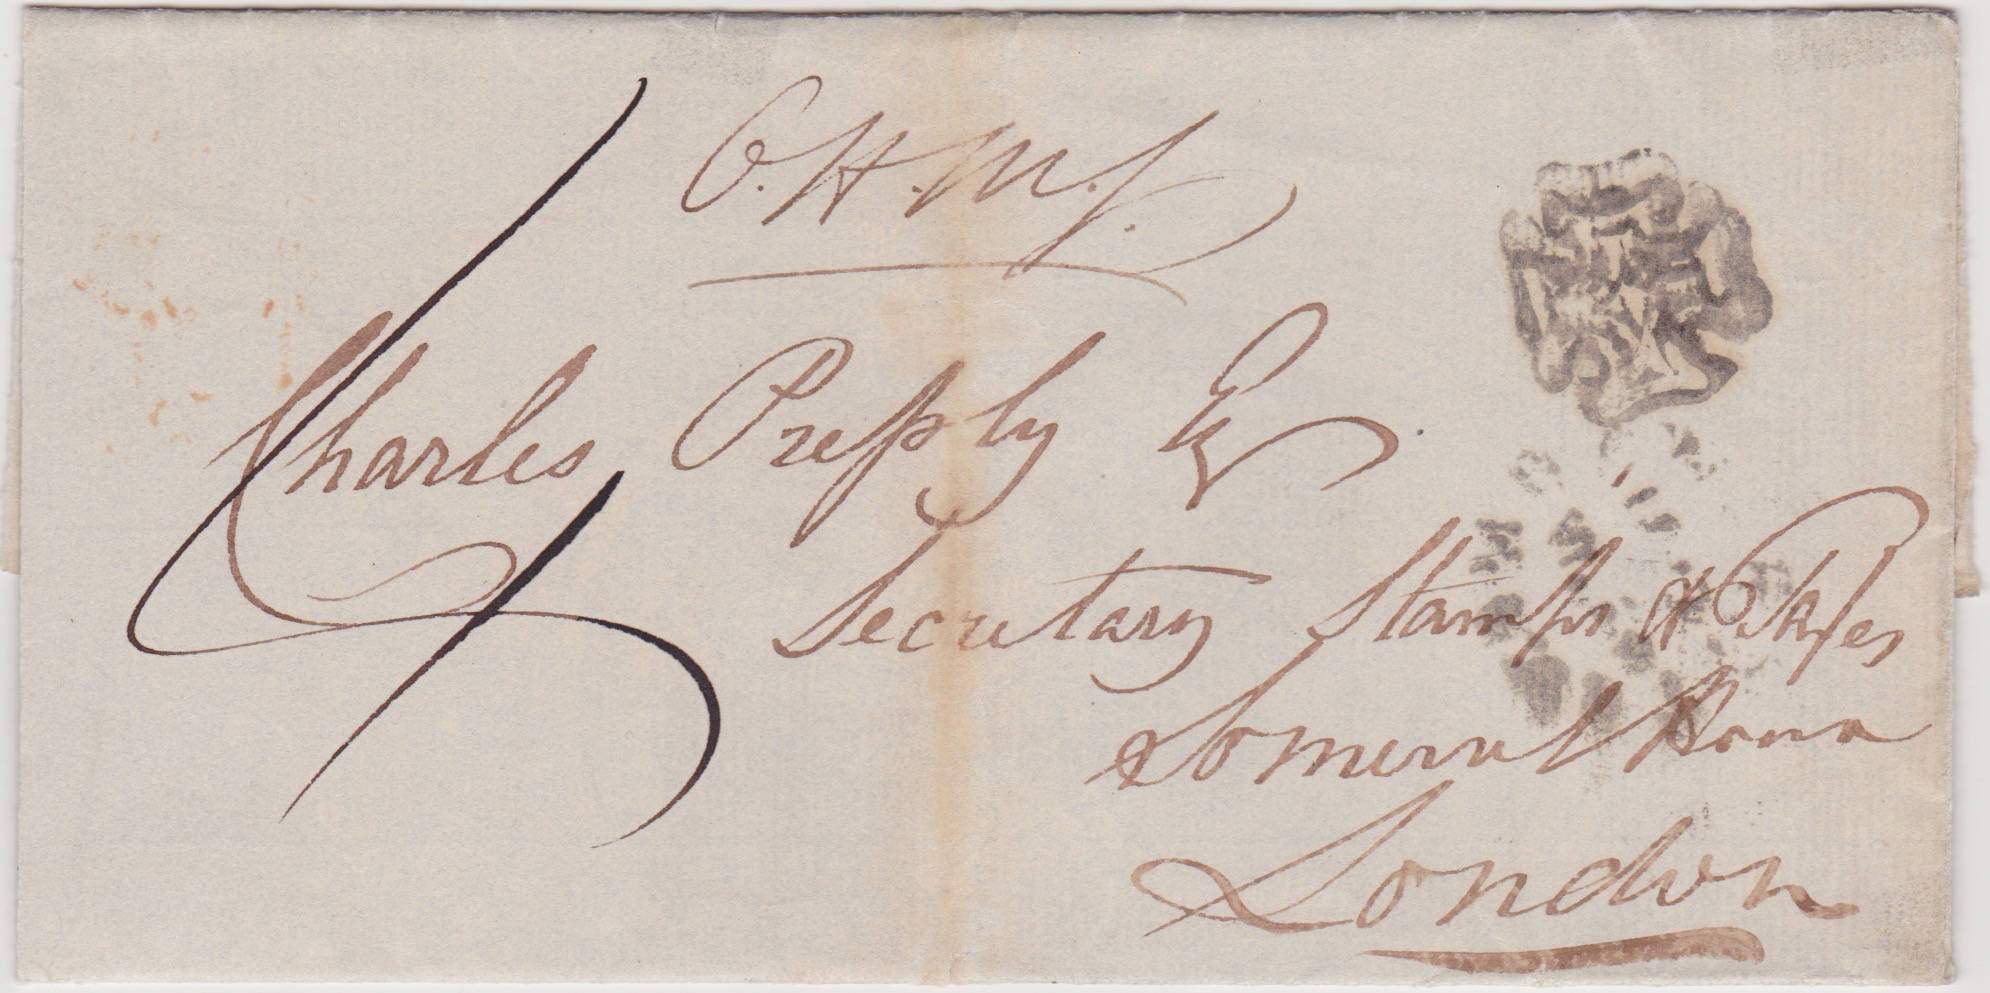 O.H.M.S.
Charles Pressly Esq
Secretary Stamps & Taxes
Somerset House
London